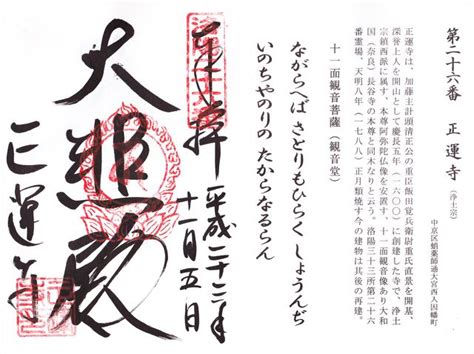 第二十六番　正運寺（浄土宗）
中京区蛸薬師通大宮西入因幡町
正運寺は、加藤主計頭清正公の重臣飯田覚兵衛尉重氏直景を開基、
深誉上人を開山として慶長五年（一六〇〇）に創建した寺で、浄土
宗鎮西派に属す、本尊阿弥陀仏像を安置す、十一面観音像あり大和
国（奈良）長谷寺の本尊と同木なりと云う。洛陽三十三所第二十六
番霊場、天明八年（一七八八）正月類焼す今の建物は其後の再建。
十一面観音菩薩（観音堂）
ながらへば さとりもひらく しょうんぢ
いのちやのりの たからなるらん
奉拝
平成二十二年
十一月五日
大悲殿
正運寺